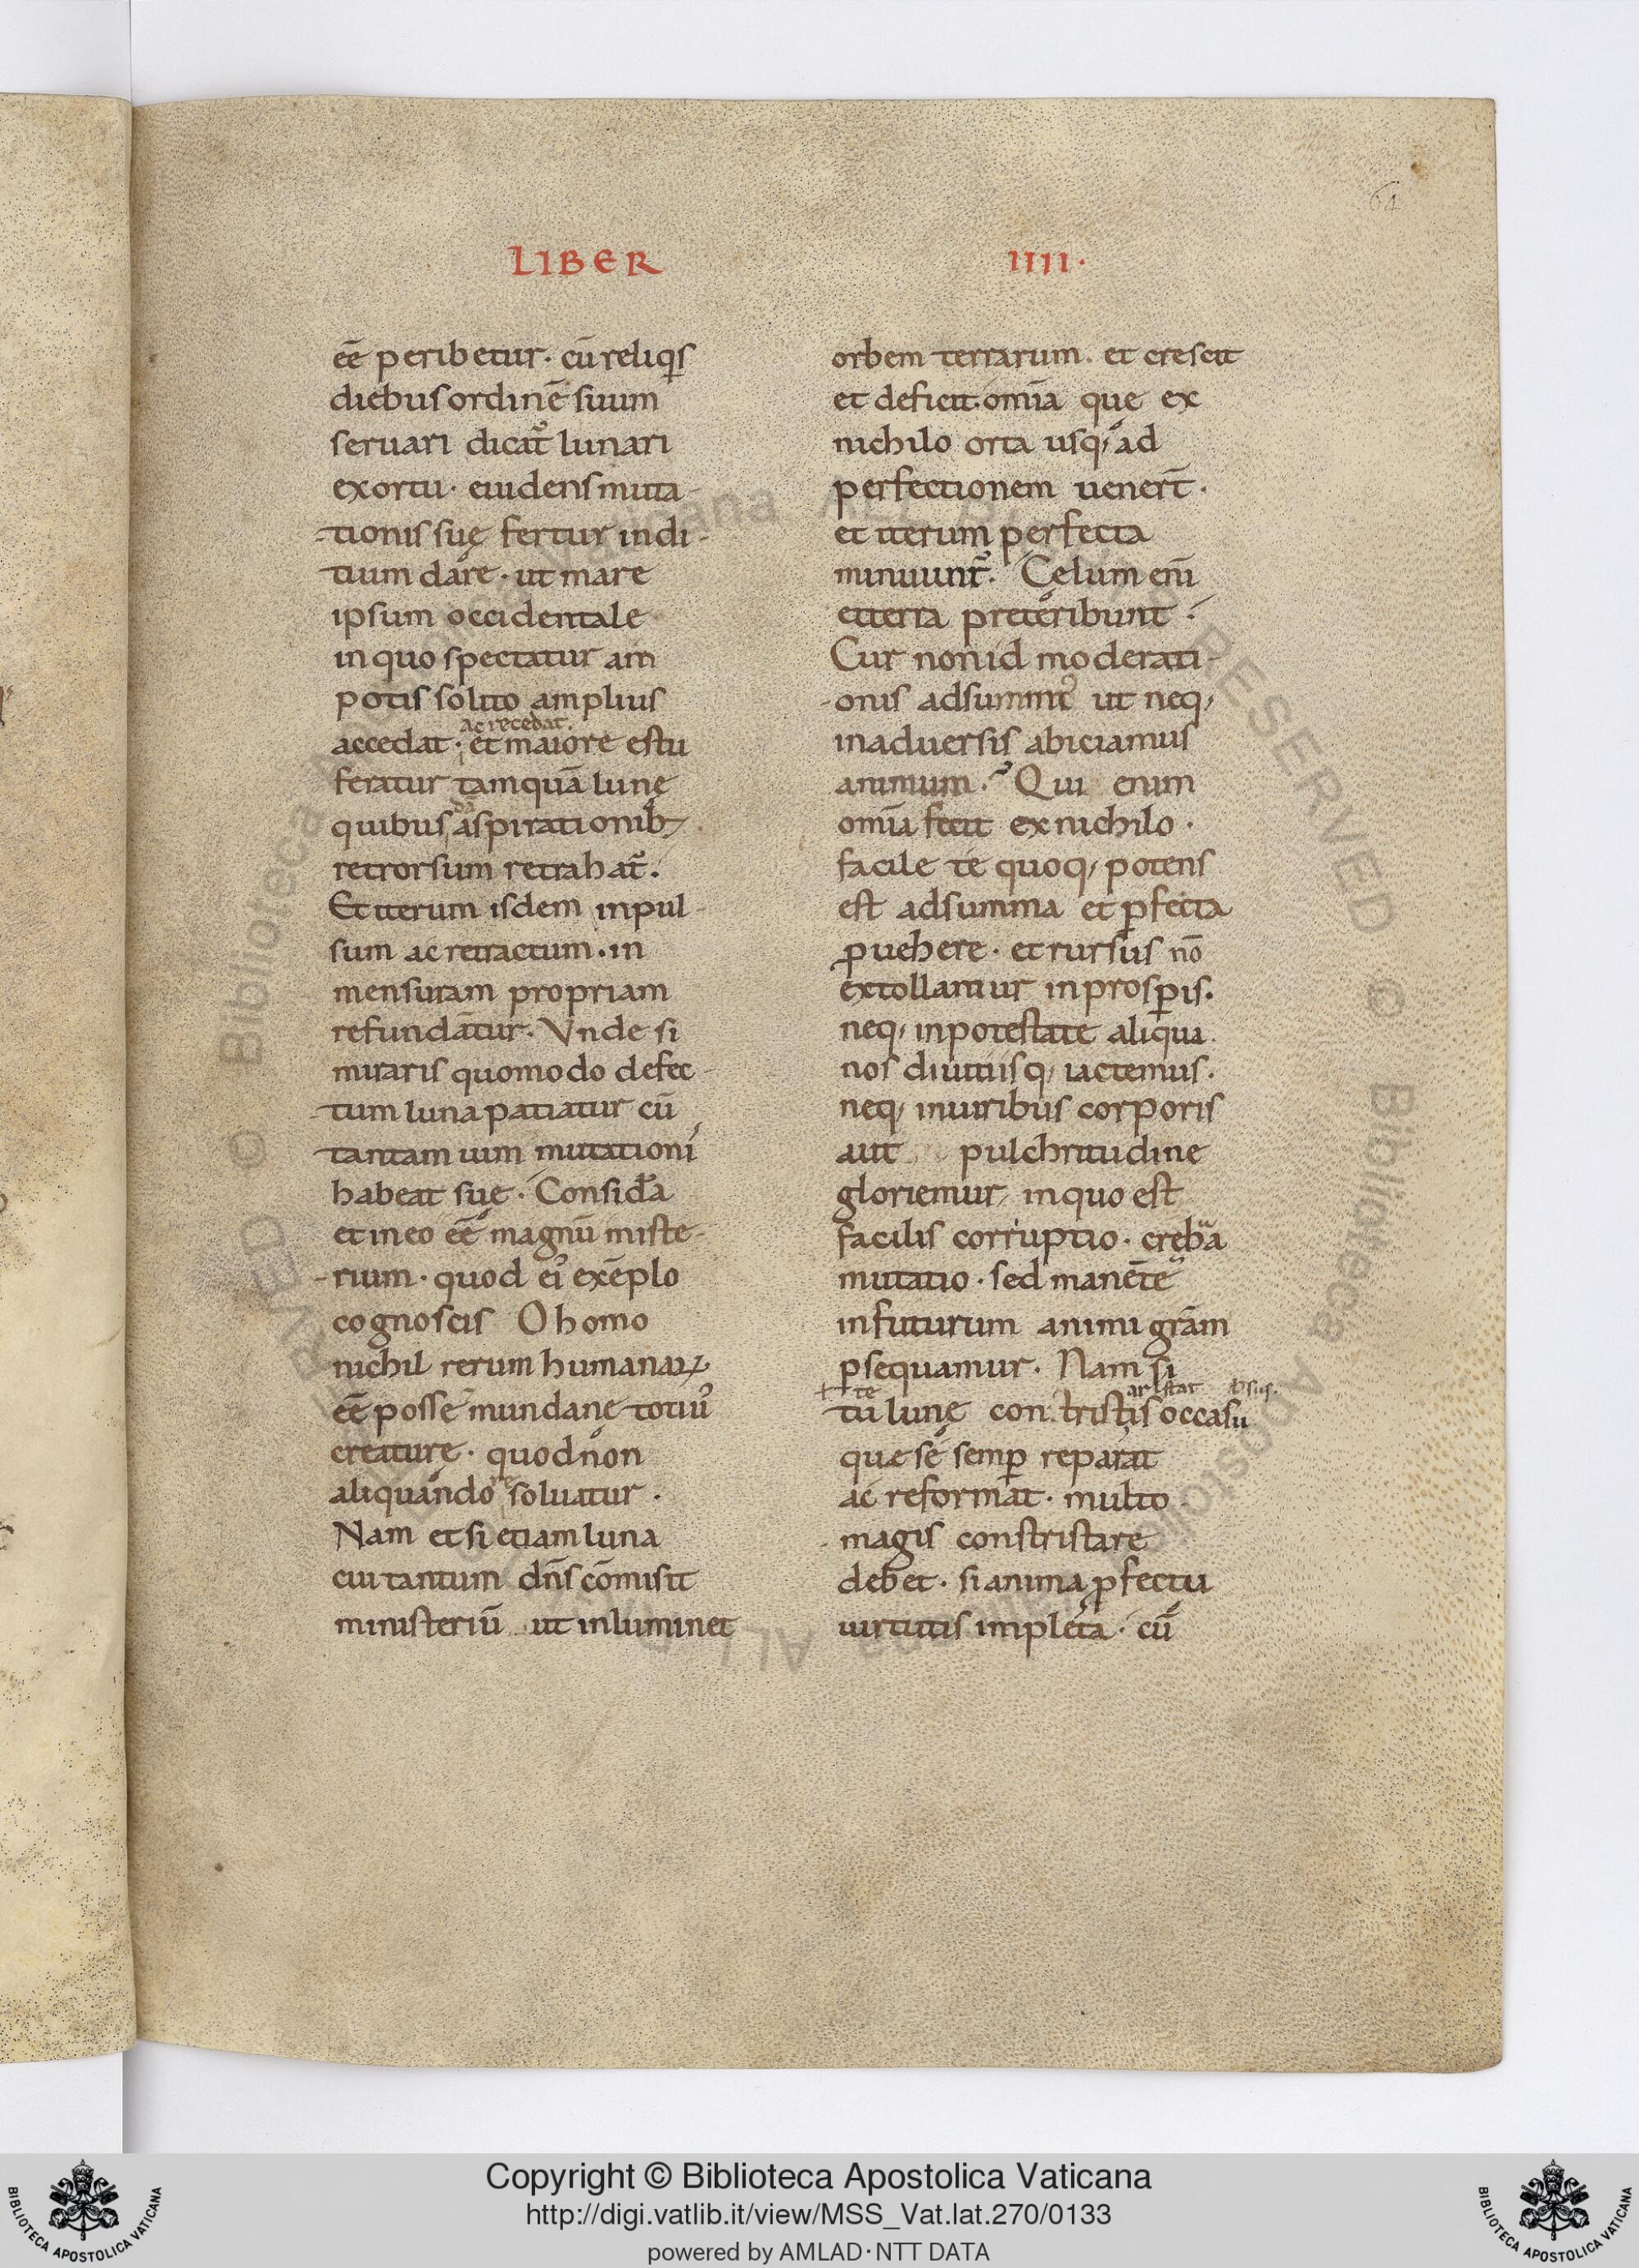 64
LIBER IIII·
eē peribetur· cū reliqis
diebus ordinē suum
seruari dicat᷑ lunari
exortu· euidens muta-
tionis suę fertur indi-
tium dare· ut mare
ipsum occidentale
in quo spectatur am
potis solito amplius
ac recedat·
accedat· et maiore estu
feratur tamquā lunę
quibus aspirationib;
retrorsum retrahat᷑.
Et iterum isdem inpul-
sum ac retractum. in
mensuram propriam
refundatur. Vnde si
miraris quomodo defec-
tum luna patiatur cū
tantam uim mutationi
habeat suę· Considˀa
et in eo eē magnū miste-
rium· quod eiˀ exēplo
cognoscis O homo
nichil rerum humanaꝝ
eē posse mundanę totiuˀ
creaturę· quod non
re
aliquando soluatur·
Nam et si etiam luna
cui tantum dn̄s cōmisit
ministeriū ut inluminet
orbem terrarum. et crescit
et deficit· omīa que ex
nichilo orta usq; ad
perfectionem uenert̄·
et iterum perfecta
minuunt᷑. Cęlum enī
et terra preteribunt·
Cur non id moderati-
onis adsumimˀ ut neq;
in aduersis abiciamus
animum.? Qui enim
omīa fecit ex nichilo·
facile te quoq; potens
est ad summa et ꝑfecta
ꝓuehere· et rursus nō
extollamur in prosꝑis.
neq; in potestate aliqua
nos diuitiisq; iactemus.
neq; in uiribus corporis
aut pulchritudine
gloriemur in quo est
facilis corruptio· crebͣa
mutatio· sed manēte
in futurum animi grām
ꝑsequamur. Nam si
te
tu lunę contristis occasu
quae se semꝑ reparat
ac reformat· multo
magis constristare
debet· si anima ꝓfectu
uirtutis impleta· cū
Copyright © Biblioteca Apostolica Vaticana
http://digi.vatlib.it/view/MSS_Vat.lat.270/0133
powered by AMLAD·NTT DATA
BIBLIOTECA APOSTOLICA VATICANA
BIBLIOTECA APOSTOLICA VATICANA